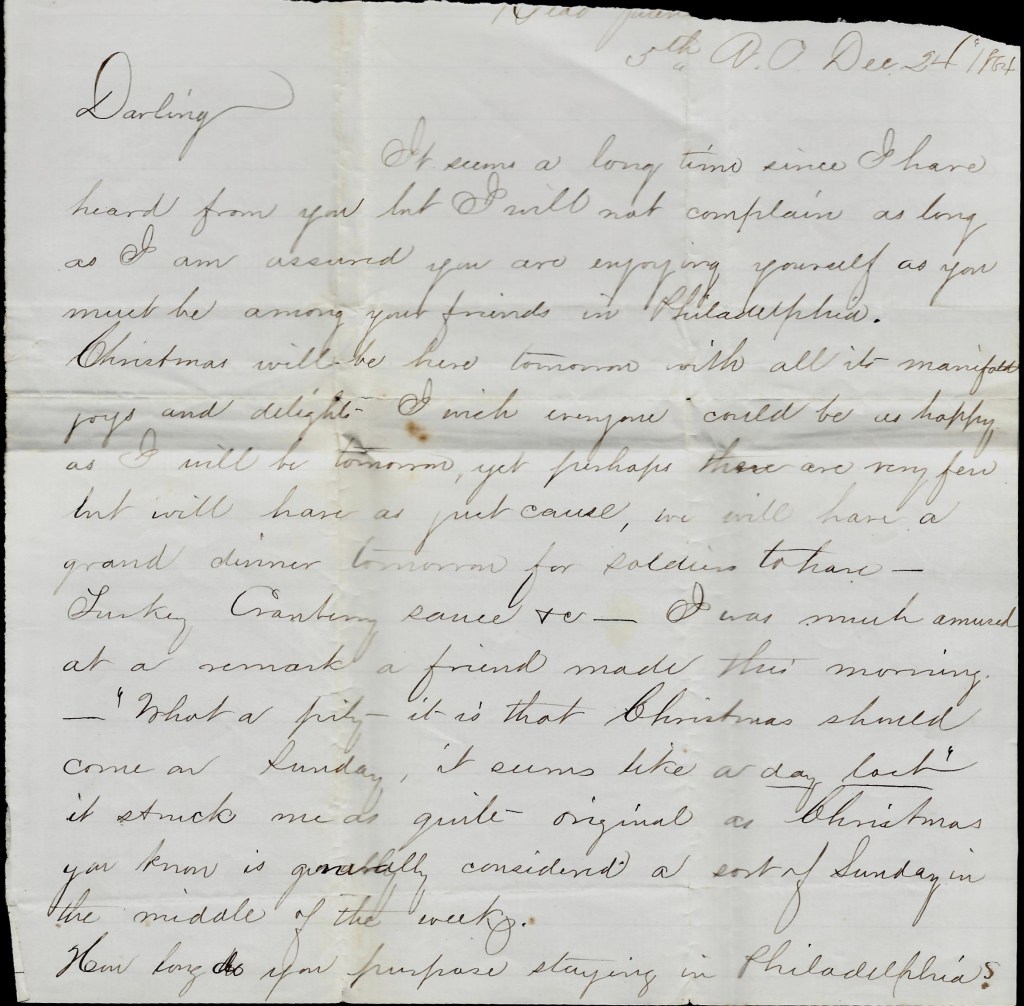 5th A. C. Dec. 24th 1864
Darling
It seems a long time since I have
heard from you but I will not complain as long
as I am assured you are enjoying yourself as you
must be among your friends in Philadelphia.
Christmas will be here tomorrow with all its manifold
joys and delights I wish everyone could be as happy
as I will be tomorrow, yet perhaps there are very few
but will have as just cause, we will have a
grand dinner tomorrow for soldiers to have —
Turkey Cranberry sauce &c — I was much amused
at a remark a friend made this morning.
— "What a pity it is that Christmas should
come on Sunday, it seems like a day lost"
it struck me as quite original as Christmas
you know is generally considered a sort of Sunday in
the middle of the week.
How long do you purpose staying in Philadelphia?